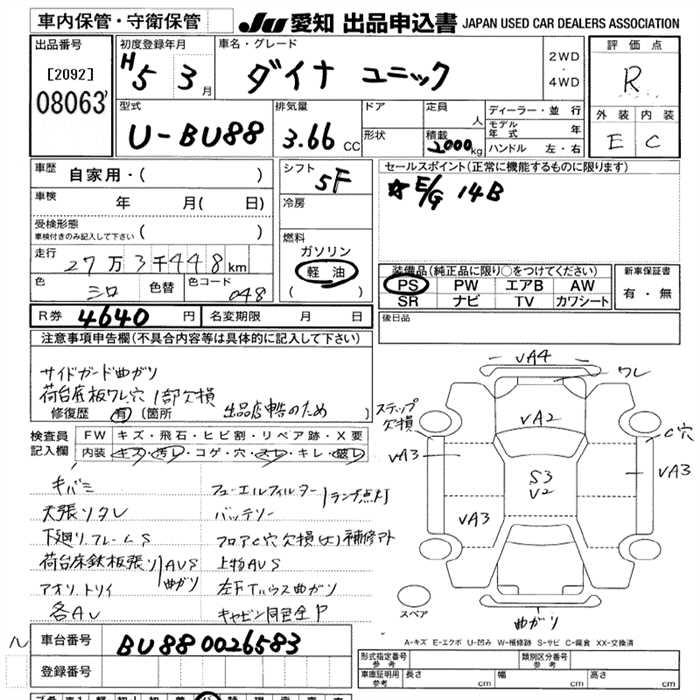 車内保管・守衛保管 JU 愛知 出品申込書 JAPAN USED CAR DEALERS ASSOCIATION
出品番号
[2092]
08063
初度登録年月
H5 3月
車名・グレード
ダイナ ユニック
2WD
・
4WD
評価点
R
型式
U-BU88
排気量
3.66 CC
ドア
形状
定員 人
積載 2000kg
ディーラー・並行
モデル年式 年
ハンドル 左・右
外装 内装
E C
車歴
自家用・( )
車検 年 月( 日)
受検形態
車検付きのみ記入して下さい ( )
走行
27万3千448km
色
シロ
色替
色コード
048
シフト
5F
冷房
燃料
ガソリン
軽油
( )
セールスポイント(正常に機能するものに限ります)
☆E/G 14B
装備品(純正品に限り○をつけてください)
PS PW エアB AW
SR ナビ TV カワシート
新車保証書
有・無
後日品
R券 4640 円 名変期限 月 日
注意事項申告欄(不具合内容等は具体的に記入して下さい)
サイドガード曲ガリ
荷台床板ワレ穴 1部欠損
修復歴 有 (箇所 出品店申告のため )
検査員記入欄
FW キズ・飛石・ヒビ割・リペア跡・X要
内装 キズ・汚レ・コゲ・穴・スレ・キレ・破レ
キバミ
天張リタレ
下廻リ.フレームS
荷台床鉄板張リ
アオリ.トリイ
AUS
曲ガリ
各AU
フューエルフィルター
バッテリー
ランプ点灯
フロアC穴欠損(大)補修アト
上物AUS
キャビン同色全P
VA4
ワレ
ステップ
欠損
VA2
C穴
VA3
VA3
S3
V2
VA3
スペア
曲ガリ
A-キズ E-エクボ U-凹み W-補修跡 S-サビ C-腐食 XX-交換済
車台番号 BU88 0026583
登録番号
形式指定番号
参考
類別区分番号
参考
車庫証明用
参考
長さ cm 幅 cm 高さ cm